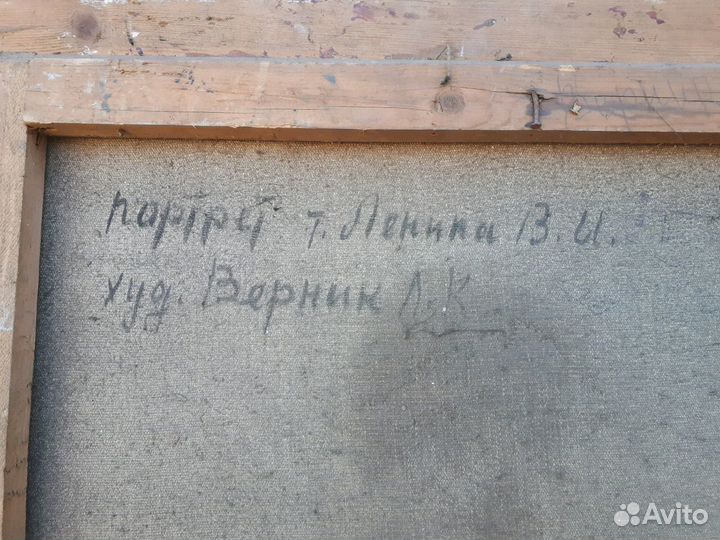 портрет т. Ленина В. И.
худ. Верник Л. К
Avito